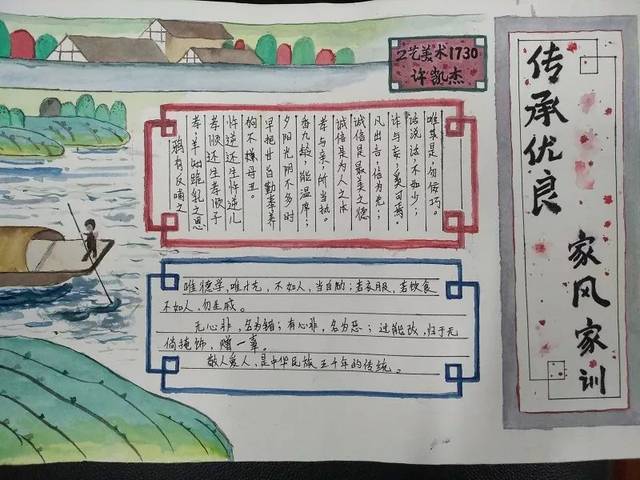 工艺美术1730
许凯杰
传承优良
家风家训
唯其是;勿佞巧。
话说,不如少;
诈与妄;奚可焉。
凡出言;信为先;
诚信是最美之德
诚信是为人之本
孝与亲,所当执。
香九龄,能温席;
夕阳光阴不多时
早把甘旨勤奉养
狗不嫌母丑。
忤逆还生忤逆儿
孝顺还生孝顺子
孝:羊知跪乳之恩
鸦有反哺之
唯德学,唯才艺,不如人,当自励;若衣服,若饮食
不如人,勿生戚。
无心非,名为错;有心非,名为恶;过能改,归于无
倘掩饰,赠一辜。
敬人爱人,是中华民族五千年的传统。